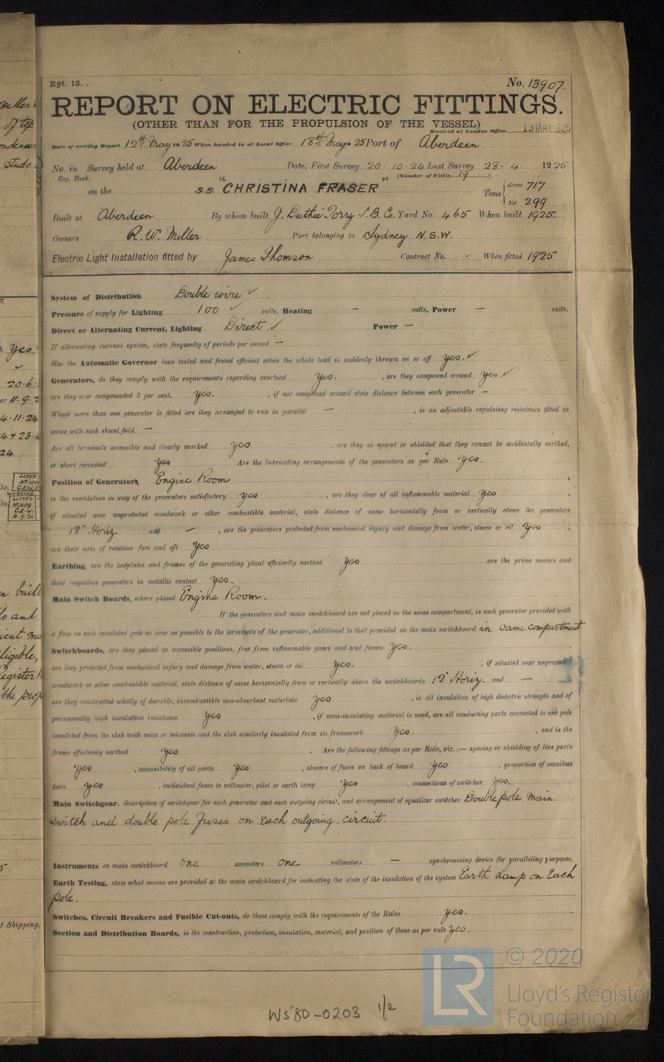 Rpt. 13.
No. 13907.
REPORT ON ELECTRIC FITTINGS.
(OTHER THAN FOR THE PROPULSION OF THE VESSEL)
Received at London Office 13 MAY 1925
Date of writing Report 12th May 1925 When handed in at Local Office 18th May 1925 Port of Aberdeen
No. in Survey held at Aberdeen Date, First Survey 20-10-24 Last Survey 28-4-1925
Reg. Book. (Number of Visits 19)
on the "S.S. CHRISTINA FRASER" Tons { Gross 717
Net 299
Built at Aberdeen By whom built J. Duthie Torry S.B. Co. Yard No. 465 When built 1925
Owners R. W. Miller Port belonging to Sydney N.S.W.
Electric Light Installation fitted by James Thomson Contract No. ✓ When fitted 1925
System of Distribution Double wire ✓
Pressure of supply for Lighting 100 ✓ volts, Heating — volts, Power — volts.
Direct or Alternating Current, Lighting Direct ✓ Power —
If alternating current system, state frequency of periods per second —
Has the Automatic Governor been tested and found efficient when the whole load is suddenly thrown on or off Yes. ✓
Generators, do they comply with the requirements regarding overload Yes. , are they compound wound Yes ✓
are they over compounded 5 per cent. Yes. , if not compound wound state distance between each generator —
Where more than one generator is fitted are they arranged to run in parallel — , is an adjustable regulating resistance fitted in
series with each shunt field —
Are all terminals accessible and clearly marked Yes , are they so spaced or shielded that they cannot be accidentally earthed,
or short circuited Yes Are the lubricating arrangements of the generators as per Rule Yes.
Position of Generators Engine Room
is the ventilation in way of the generators satisfactory Yes , are they clear of all inflammable material Yes
if situated near unprotected woodwork or other combustible material, state distance of same horizontally from or vertically above the generators
18" Horiz. and — , are the generators protected from mechanical injury and damage from water, steam or oil Yes
are their axis of rotation fore and aft Yes
Earthing, are the bedplates and frames of the generating plant efficiently earthed Yes are the prime movers and
their respective generators in metallic contact Yes.
Main Switch Boards, where placed Engine Room.
If the generators and main switchboard are not placed in the same compartment, is each generator provided with
a fuse on each insulated pole as near as possible to the terminals of the generator, additional to that provided on the main switchboard in same compartment
Switchboards, are they placed in accessible positions, free from inflammable gases and acid fumes Yes.
are they protected from mechanical injury and damage from water, steam or oil Yes. , if situated near unprotected
woodwork or other combustible material, state distance of same horizontally from or vertically above the switchboards 12" Horiz. and —
are they constructed wholly of durable, incombustible non-absorbent materials Yes , is all insulation of high dielectric strength and of
permanently high insulation resistance Yes , if semi-insulating material is used, are all conducting parts connected to one pole
insulated from the slab with mica or micanite and the slab similarly insulated from its framework Yes. , and is the
frame effectively earthed Yes . Are the following fittings as per Rule, viz.:— spacing or shielding of live parts
Yes , accessibility of all parts Yes , absence of fuses on back of board Yes , proportion of omnibus
bars Yes , individual fuses in voltmeter, pilot or earth lamp Yes , connections of switches Yes.
Main Switchgear, description of switchgear for each generator and each outgoing circuit, and arrangement of equalizer switches Double pole main
switch and double pole fuses on each outgoing circuit.
Instruments on main switchboard one ammeters one voltmeters — synchronising device for paralleling purposes.
Earth Testing, state what means are provided at the main switchboard for indicating the state of the insulation of the system Earth Lamp on Each
pole.
Switches, Circuit Breakers and Fusible Cut-outs, do these comply with the requirements of the Rules Yes.
Section and Distribution Boards, is the construction, protection, insulation, material, and position of these as per rule Yes.
WS80-0203 1/2
LR
© 2020
Lloyd's Register
Foundation